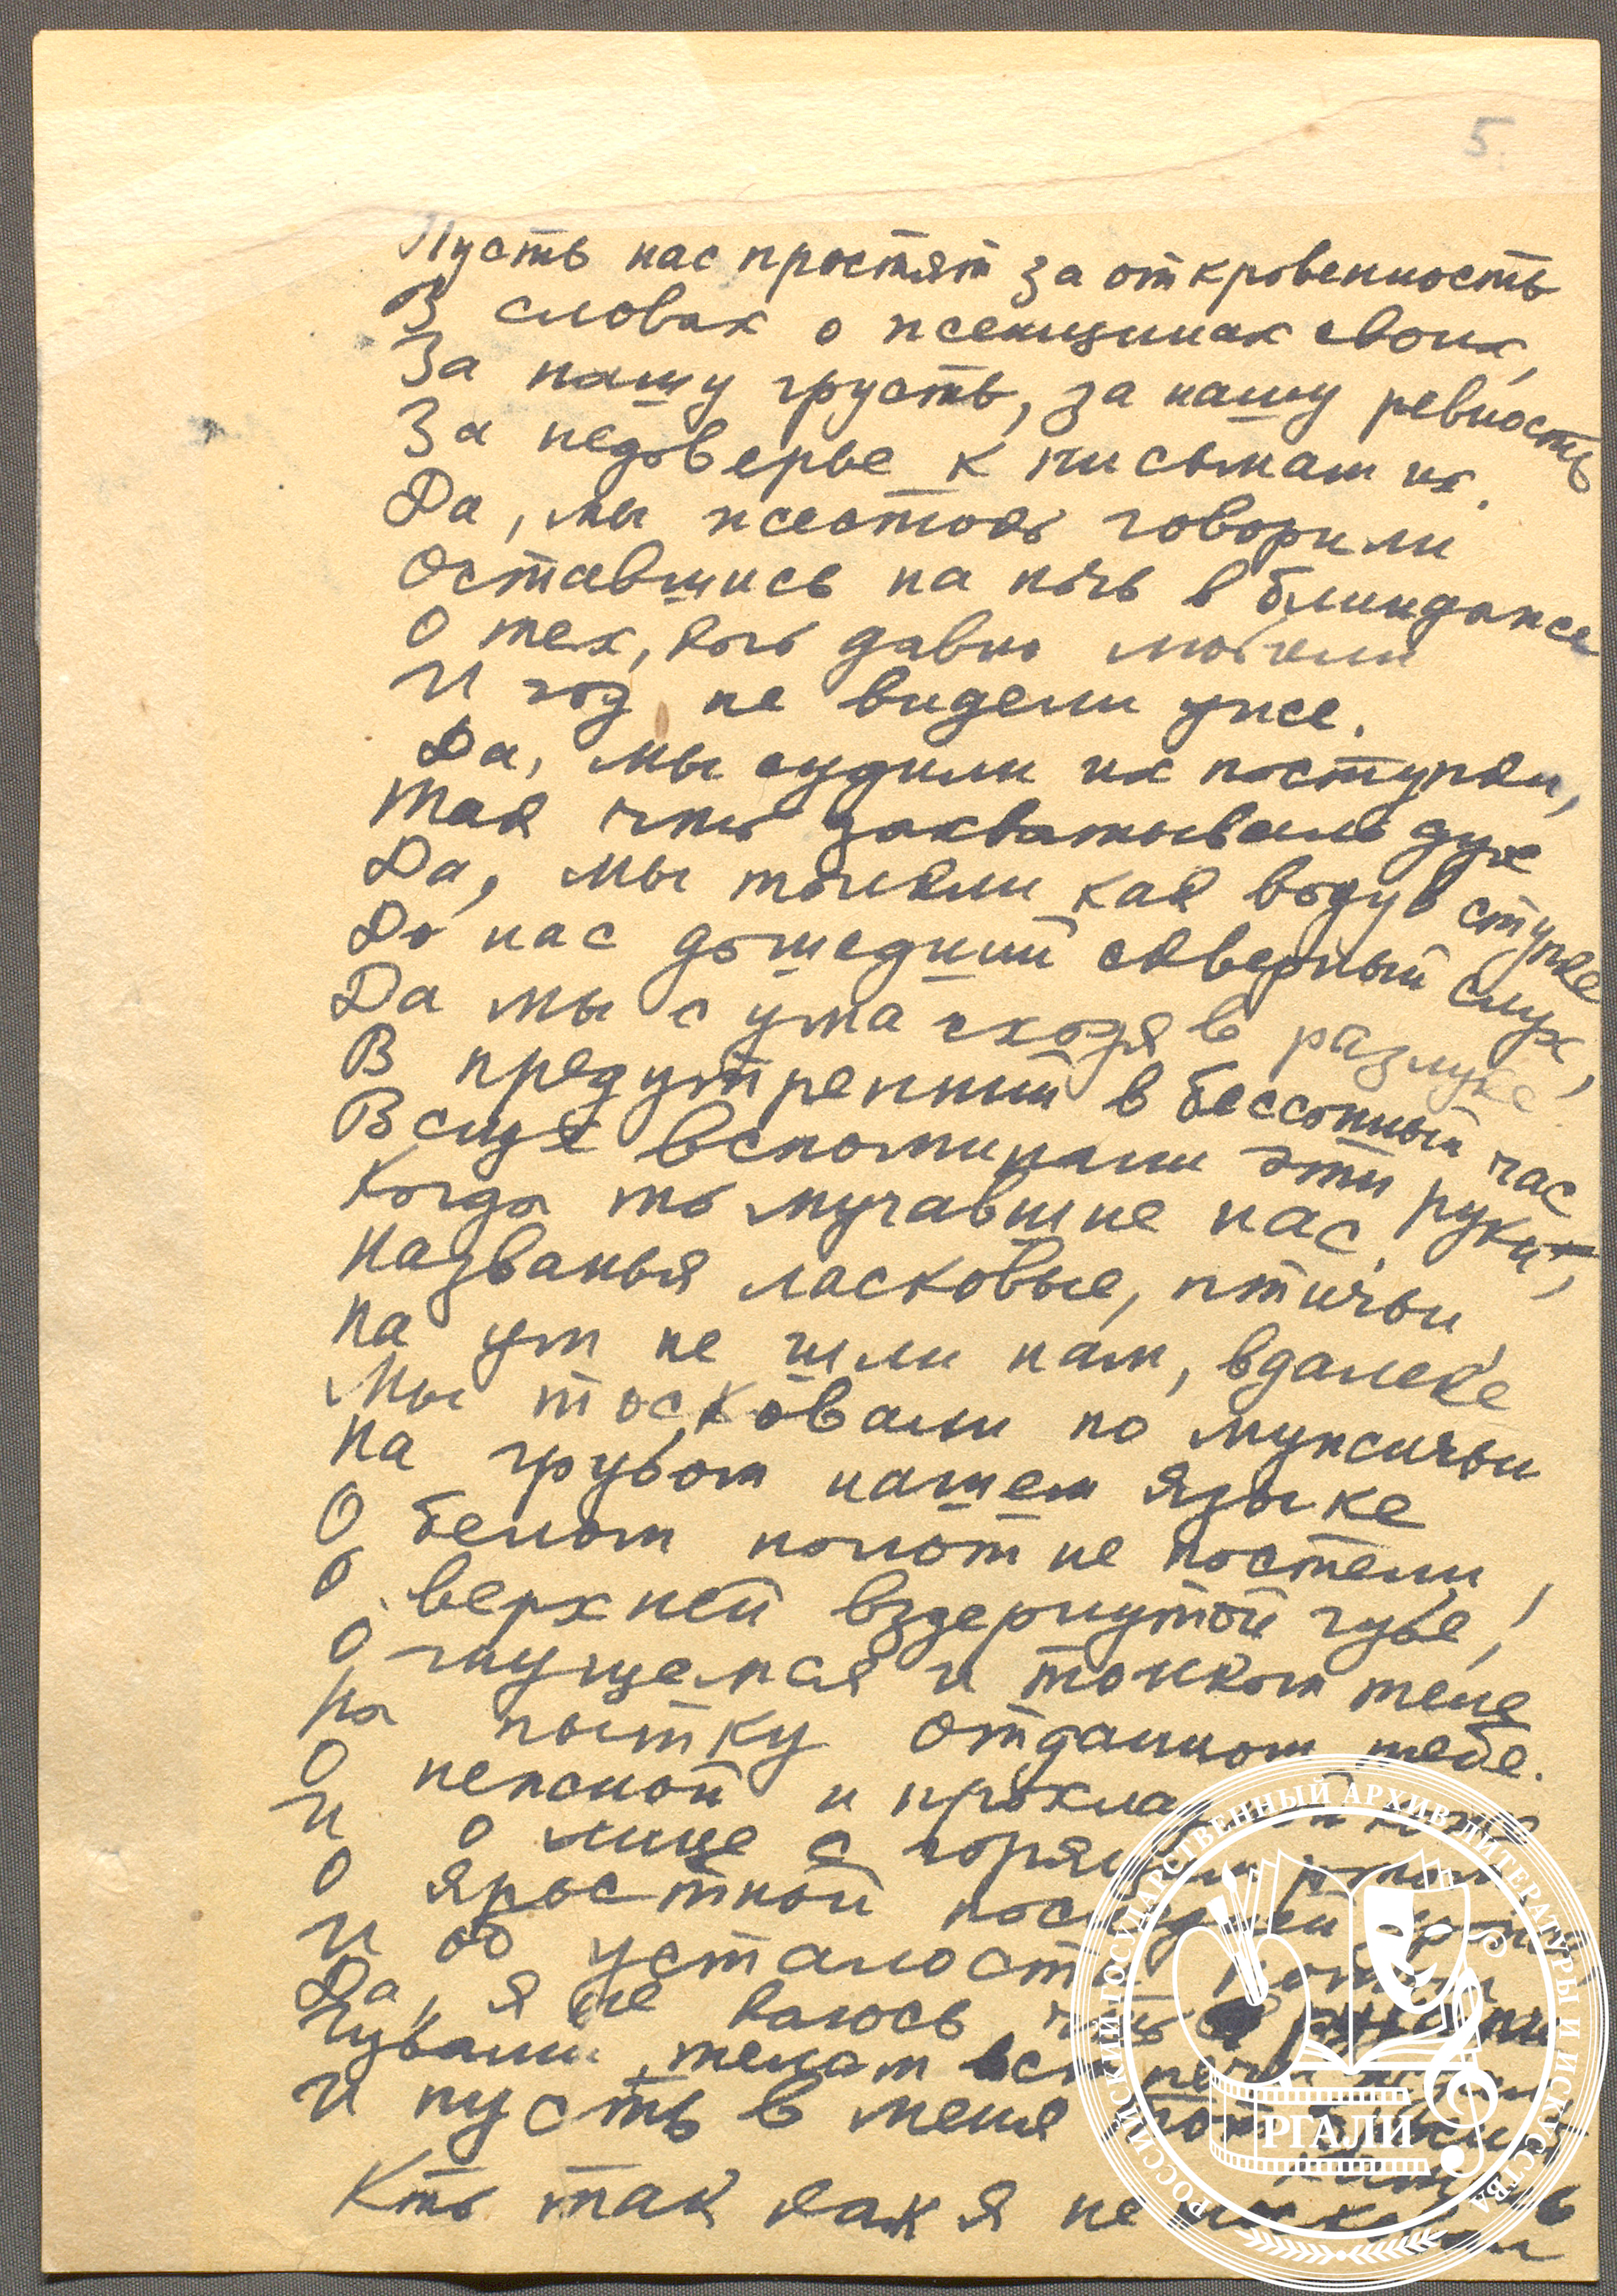 5.
Пусть нас простят за откровенность
В словах о женщинах своих,
За нашу грусть, за нашу ревность
За недоверье к письмам их.
Да, мы жестоко говорили
Оставшись на ночь в блиндаже
О тех, кого давно любили
И год не видели уже.
Да, мы судили их поступки,
Так что захватывало дух
Да, мы толкли как воду в ступке
До нас дошедший скверный слух,
Да мы с ума сходя в разлуке
В предутренний в бессонный час
Вслух вспоминали эти руки,
Когда то мучавшие нас.
Названья ласковые, птичьи
На ум не шли нам, вдалеке
Мы тосковали по мужичьи
На грубом нашем языке
О белом полотне постели,
О верхней вздернутой губе,
О гнущемся и тонком теле
На пытку отданном тебе.
О нежной и прохладной коже
И о лице с горящим ртом
О яростной последней дрожи
И об усталости потом
Да, я не каюсь, что руками
Губами, телом встречи
И пусть в меня тот бросит камень
Кто так как я не тосковал
РОССИЙСКИЙ ГОСУДАРСТВЕННЫЙ АРХИВ ЛИТЕРАТУРЫ И ИСКУССТВА
РГАЛИ